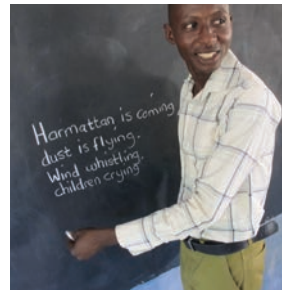 Harmattan is coming
dust is flying.
Wind whistling.
children crying